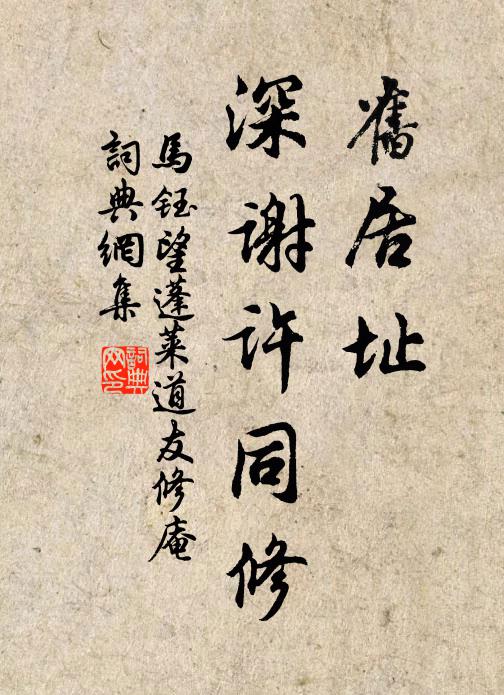 舊居址
深謝許同修
馬鈺望蓬萊道友修庵
詞典網集
詞典
网印